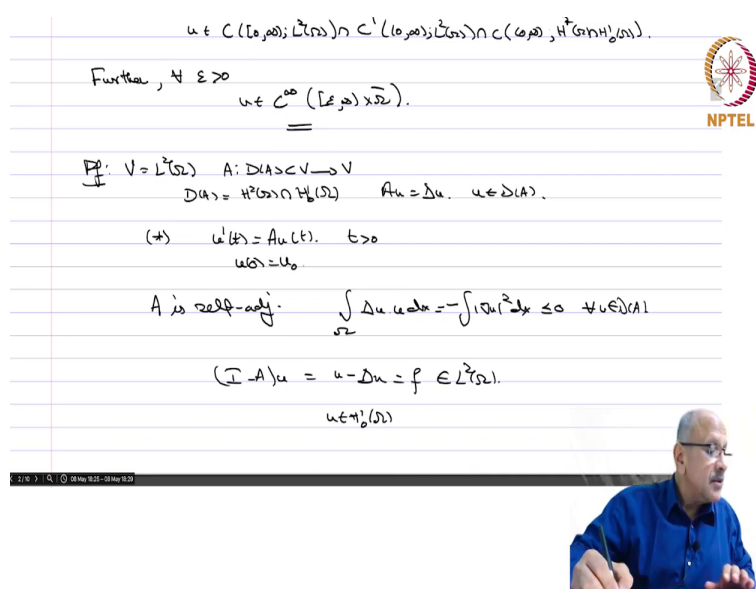 u ∈ C([0,∞); L²(Ω)) ∩ C¹((0,∞); L²(Ω)) ∩ C((0,∞), H²(Ω)∩H¹₀(Ω)).
Further, ∀ ε>0
u ∈ C^∞ ([ε,∞) × Ω̄).
NPTEL
Pf: V = L²(Ω) A: D(A) ⊂ V → V
D(A) = H²(Ω) ∩ H¹₀(Ω) Au = Δu. u ∈ D(A).
(*) u'(t) = Au(t). t>0
u(0) = u₀
A is self-adj. ∫_Ω Δu.u dx = -∫|∇u|² dx ≤ 0 ∀ u ∈ D(A)
(I-A)u = u - Δu = f ∈ L²(Ω).
u ∈ H¹₀(Ω)
2 / 10 08 May 18:25 – 08 May 18:29